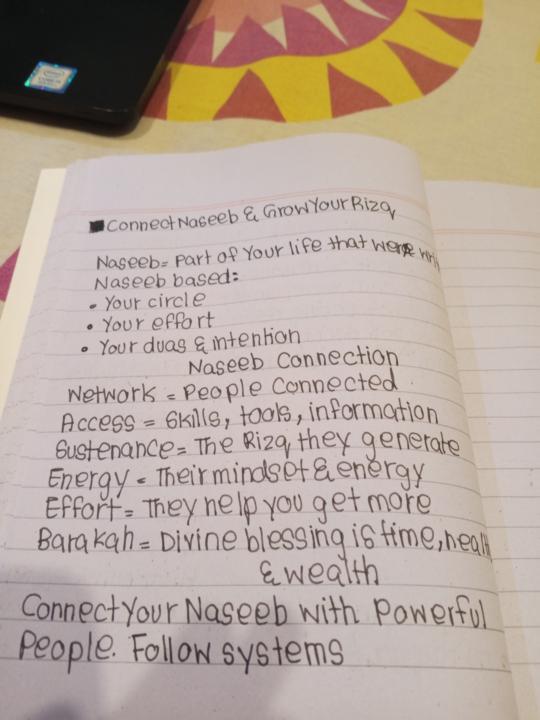 Connect Naseeb & Grow Your Rizq
Naseeb = Part of Your life that were
Naseeb based:
• Your circle
• Your effort
• Your duas & intention
Naseeb Connection
Network = People Connected
Access = Skills, tools, information
Sustenance = The Rizq they generate
Energy = Their mindset & energy
Effort = They help you get more
Barakah = Divine blessing is time,
& wealth
Connect Your Naseeb with Powerful
People. Follow systems